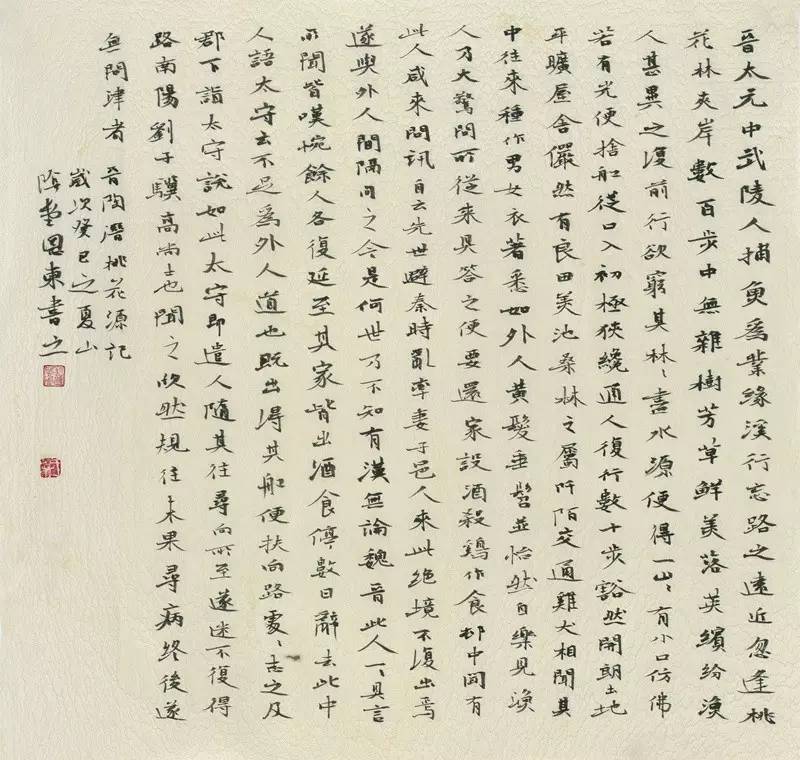 晉太元中武陵人捕魚爲業緣溪行忘路之遠近忽逢桃
花林夾岸數百步中無雜樹芳草鮮美落英繽紛漁
人甚異之復前行欲窮其林〻盡水源便得一山〻有小口仿佛
若有光便捨船從口入初極狹纔通人復行數十步豁然開朗土地
平曠屋舍儼然有良田美池桑林之屬阡陌交通雞犬相聞其
中往來種作男女衣著悉如外人黃髮垂髫並怡然自樂見漁
人乃大驚問所從來具答之便要還家設酒殺鷄作食邨中聞有
此人咸來問訊自云先世避秦時亂率妻子邑人來此絕境不復出焉
遂與外人間隔問之今是何世乃不知有漢無論魏晉此人一〻具言
所聞皆嘆惋餘人各復延至其家皆出酒食停數日辭去此中
人語太守云不足爲外人道也既出得其船便扶向路處〻志之及
郡下詣太守說如此太守即遣人隨其往尋向所至遂迷不復得
路南陽劉子驥高尚士也聞之欣然規往未果尋病終後遂
無問津者
晉陶潛桃花源記
歲次癸巳之夏山
陰東書之